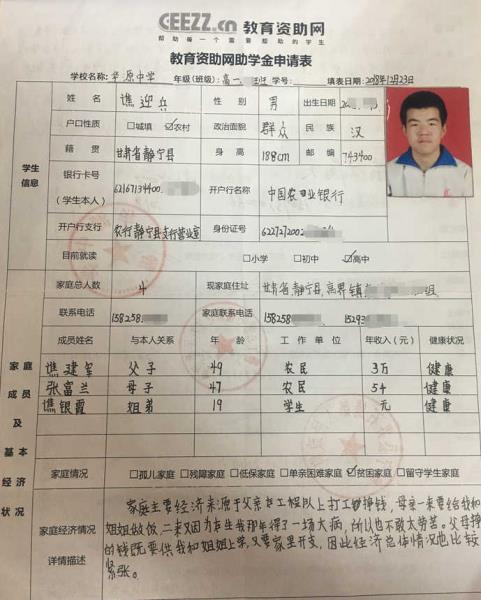 CEEZZ.cn 教育资助网
帮助每一个需要帮助的学生
教育资助网助学金申请表
学校名称: 平原中学 年级(班级): 高一 学号: 填表日期: 2018年12月23日
学生信息
姓名 谯迎兵 性别 男 出生日期
户口性质 □城镇 ☑农村 政治面貌 群众 民族 汉
籍贯 甘肃省静宁县 身高 188cm 邮编 743400
银行卡号(学生本人) 62167134400 开户行名称 中国农业银行
开户行支行 农行静宁县支行营业室 身份证号 622727200
目前就读 □小学 □初中 ☑高中
家庭成员及基本经济状况
家庭总人数 4 现家庭住址 甘肃省静宁县高界镇 组
联系电话 158258 家庭联系电话 158258 15293
成员姓名 与本人关系 年龄 工作单位 年收入(元) 健康状况
谯建 父子 49 农民 3万 健康
张富兰 母子 47 农民 5千 健康
谯银霞 姐弟 19 学生 元 健康
家庭情况 □孤儿家庭 □残障家庭 □低保家庭 □单亲困难家庭 ☑贫困家庭 □留守学生家庭
家庭经济情况详情描述
家庭主要经济来源于父亲在工程队上打工挣钱,母亲一来要给我和
姐姐做饭,二来又因为在生我那年得了一场大病,所以也不敢太劳苦。父母挣
的钱既要供我和姐姐上学,又要家里开支,因此经济总体情况也比较
紧张。